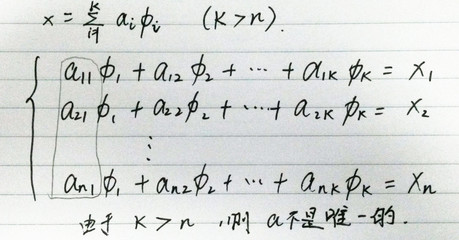 x = \sum_{i=1}^{K} a_i \phi_i (K>n).
a_{11} \phi_1 + a_{12} \phi_2 + ⋯ + a_{1K} \phi_K = x_1
a_{21} \phi_1 + a_{22} \phi_2 + ⋯ + a_{2K} \phi_K = x_2
⋮
a_{n1} \phi_1 + a_{n2} \phi_2 + ⋯ + a_{nK} \phi_K = x_n
由于 K>n ,则 a不是唯一的.